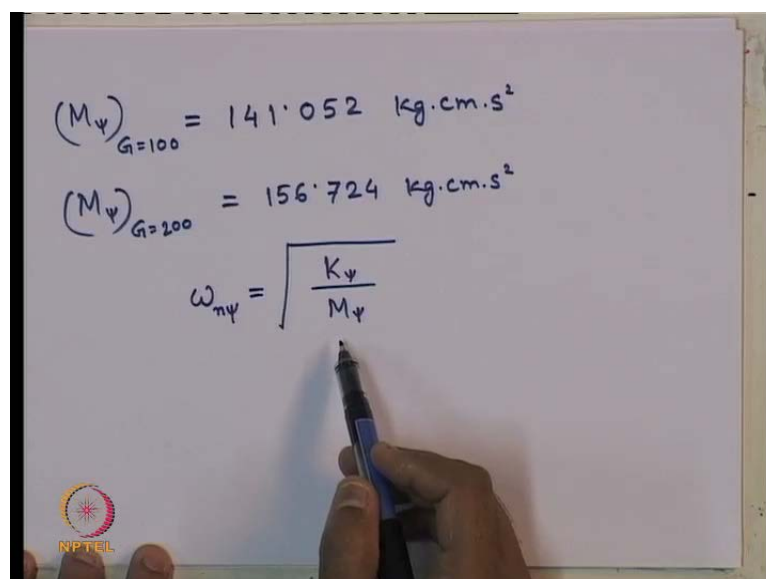 (Mψ)G=100 = 141·052 kg.cm.s²
(Mψ)G=200 = 156·724 kg.cm.s²
ωnψ = √(Kψ / Mψ)
NPTEL